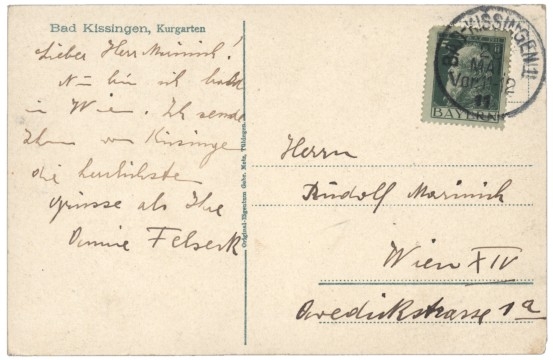 Bad Kissingen, Kurgarten
Lieber Herr Marinich!
Nun bin ich bald
in Wien. Ich sende
Ihnen von Kissingen
die herzlichsten
Grüsse als Ihre
Felseck
Original-Eigentum Gebr. Metz, Tübingen
BAD KISSINGEN 1
MAI
Vorm
11
12
BAYERN
Herrn
Rudolf Marinich
Wien XIV
Avedickstrasse 1a